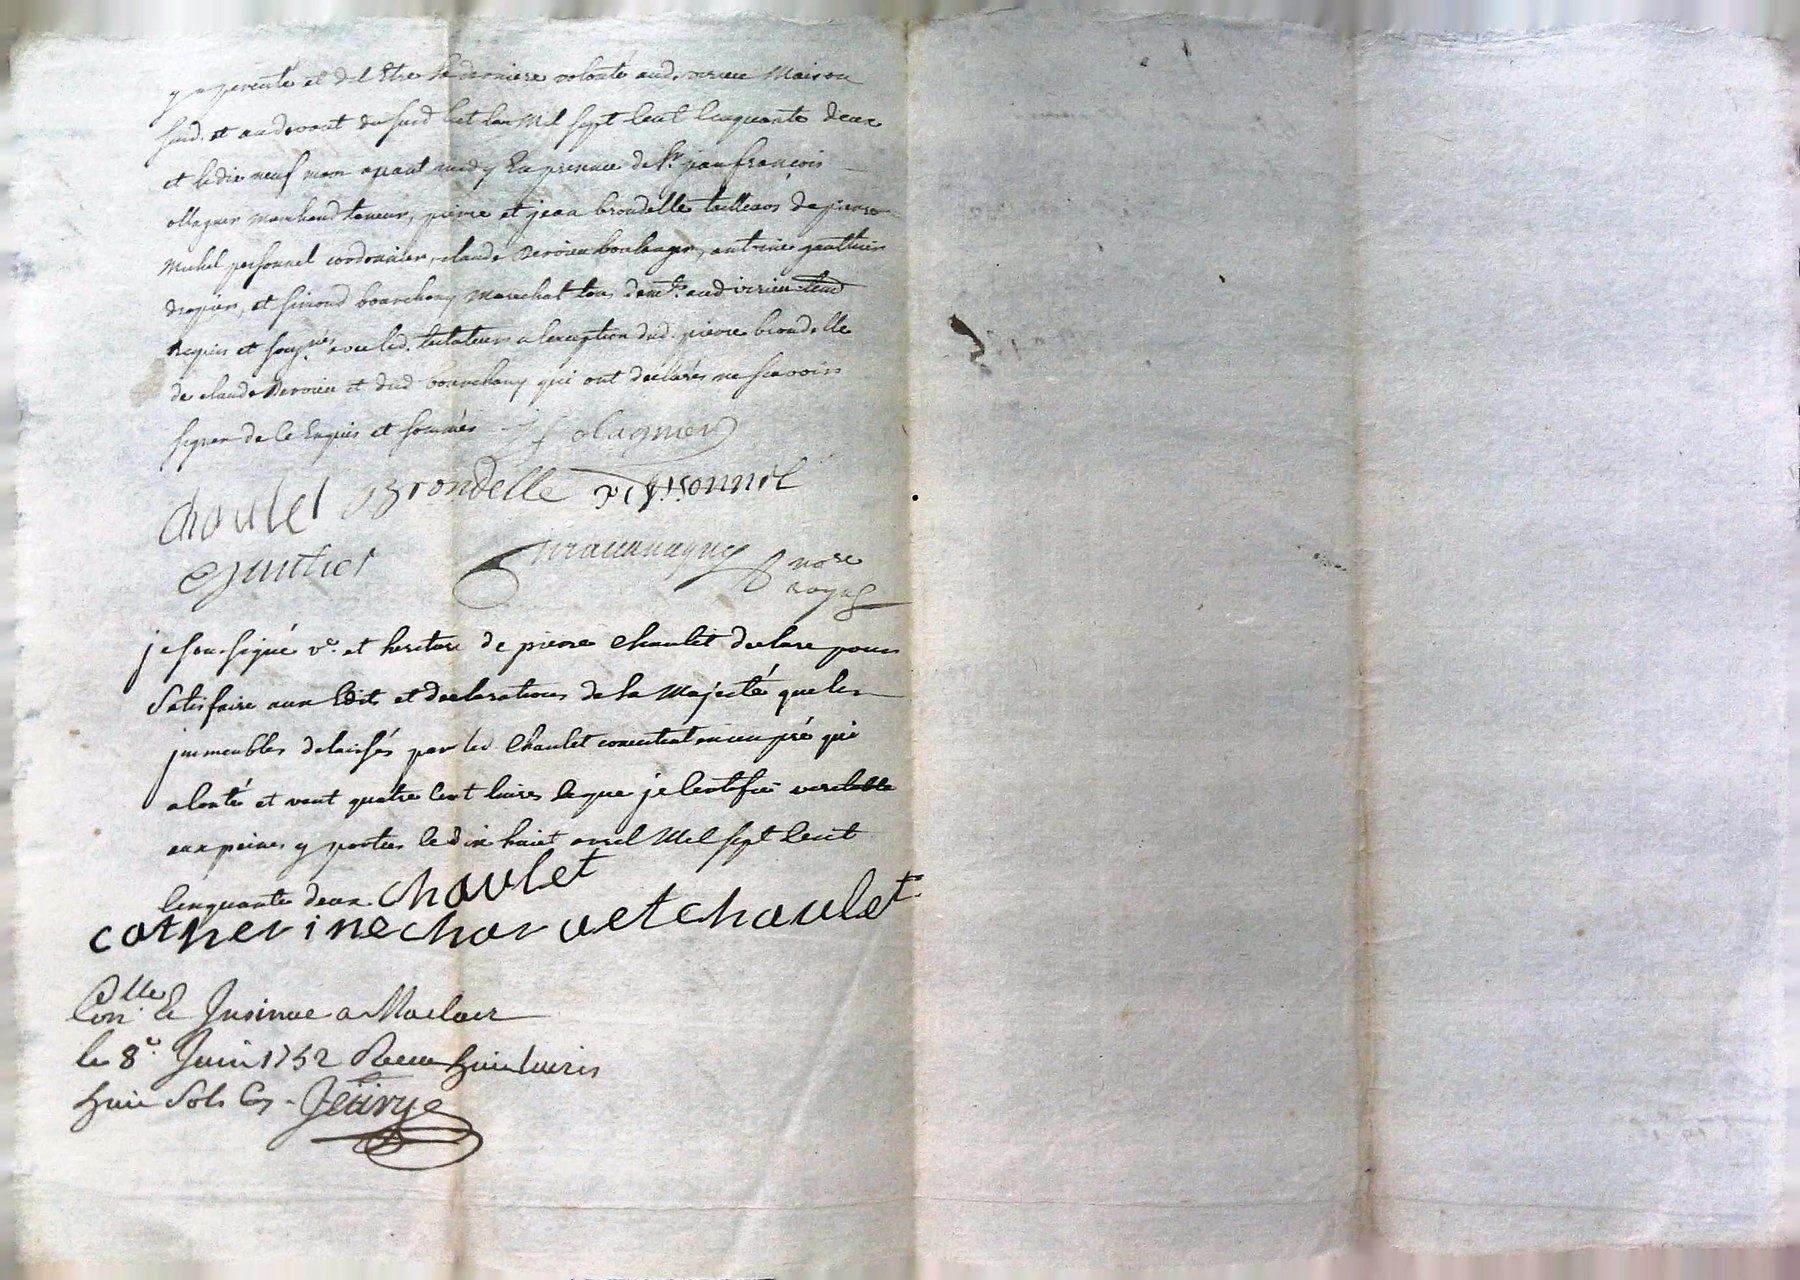 et de l'Etre sa derniere volonté aud. virieu Maison
sud. et audevant du sud lict l'an Mil sept Cent Cinquante deux
et le dix neuf mars apant midy En presence de Sr. jean françois
ollagner marchand taneur, pierre et jean brondelle tallieurs de pierre
Michel personnel cordonnier, claude Dervieu boulanger, antoine gauthier
drapier, et simond bourchany marechal tous demts. aud virieu
Requis et sousignés avec led. testateur a lexception dud. pierre brondelle
de claude Dervieu et dud bourchany qui ont déclarés ne scavoir
signer de ce Enquis et sommés J f olagnier
Choulet Brondelle personnel
gautier
note
royal
je sousigné ve. et heritiere de pierre Choulet declare pour
Satisfaire aux Edits et declarations de sa Majesté que les
jmmeubles delaissés par led Choulet consistent en un pré qui
a lonté et vaut quatre Cent livres ce que je Certifie veritable
aux peines y portées le dix huict avril Mil sept Cent
Cinquante deux. choulet
catherine charvet choulet
Conlle. & Insinué a Maclas
le 8e. Juin 1752 Receu huit livres
huit Sols